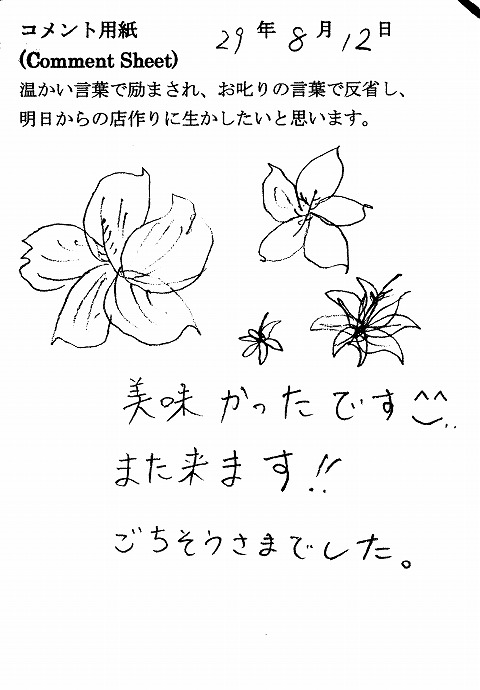 コメント用紙 29年8月12日
(Comment Sheet)
温かい言葉で励まされ、お叱りの言葉で反省し、
明日からの店作りに生かしたいと思います。
美味かったです^^
また来ます!!
ごちそうさまでした。